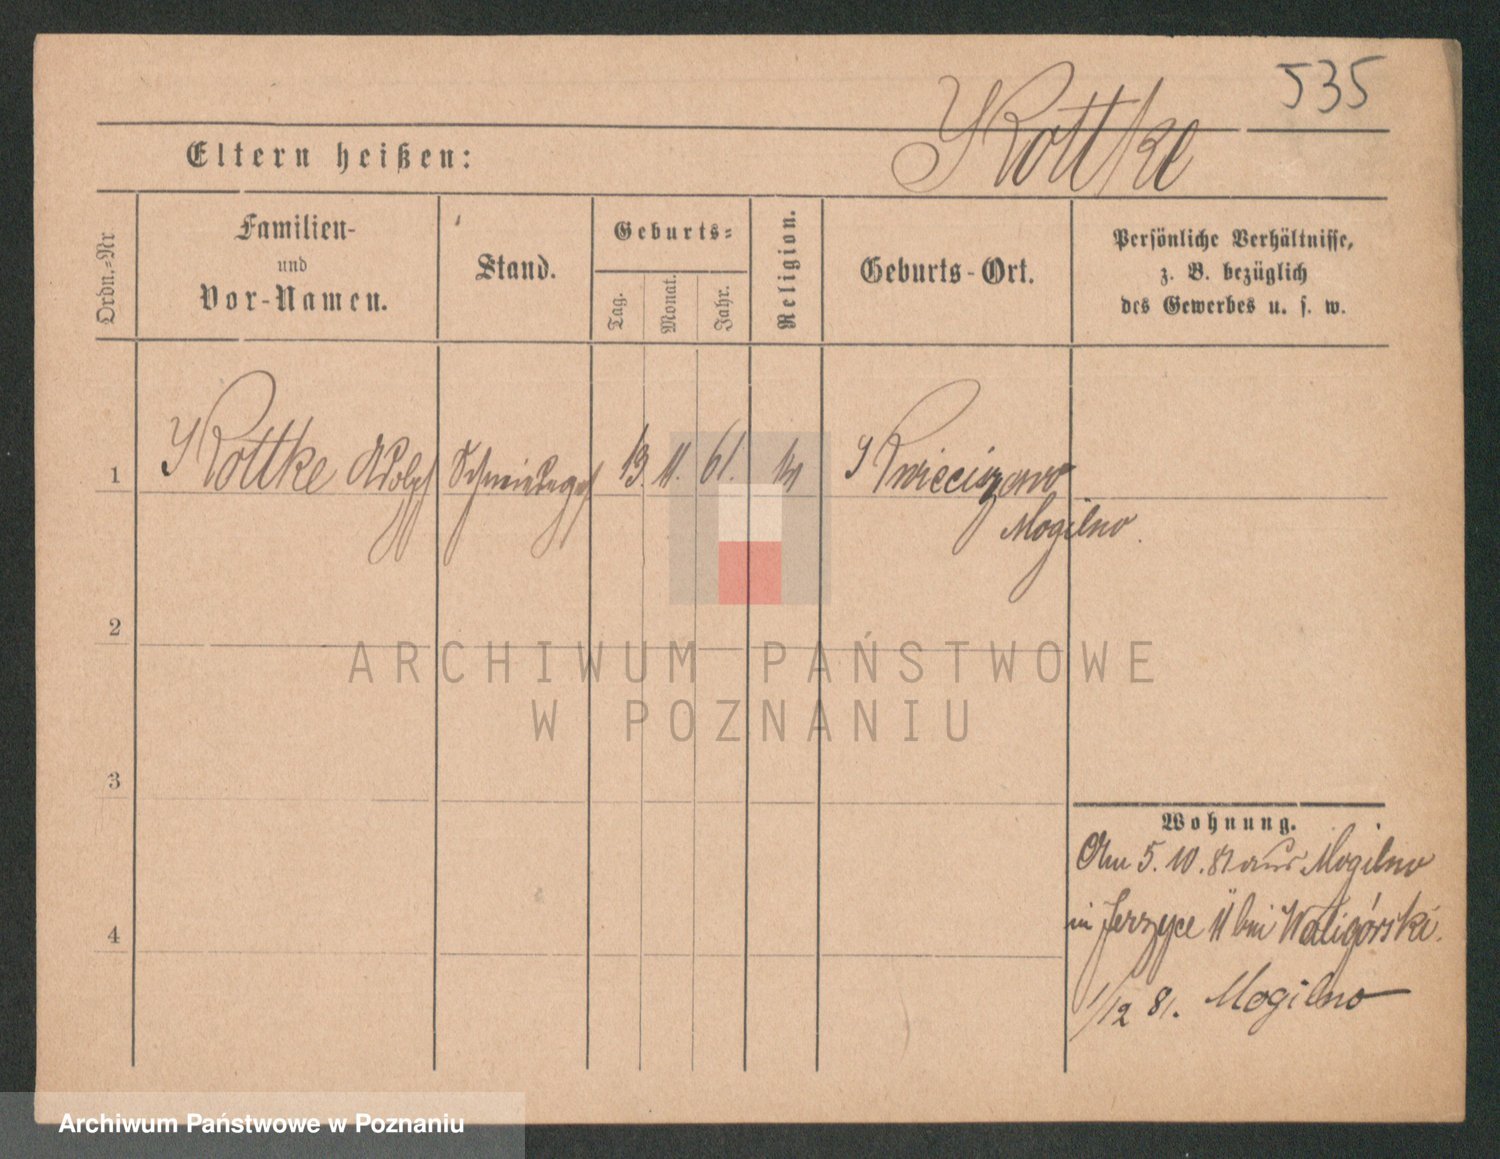 535
Kottke
Eltern heißen:
Ordn.=Nr
Familien-
und
Vor-Namen.
Stand.
Geburts=
Tag.
Monat.
Jahr.
Religion.
Geburts-Ort.
Persönliche Verhältnisse,
z. B. bezüglich
des Gewerbes u. s. w.
1
Kottke Adolf
Schmiedeges
13. 11. 61.
Kwieciszewo
Mogilno.
2
3
4
Wohnung.
Am 5. 10. 81 aus Mogilno
in Jerzyce 11 bei Waligórski.
1/12 81. Mogilno
ARCHIWUM PAŃSTWOWE
W POZNANIU
Archiwum Państwowe w Poznaniu